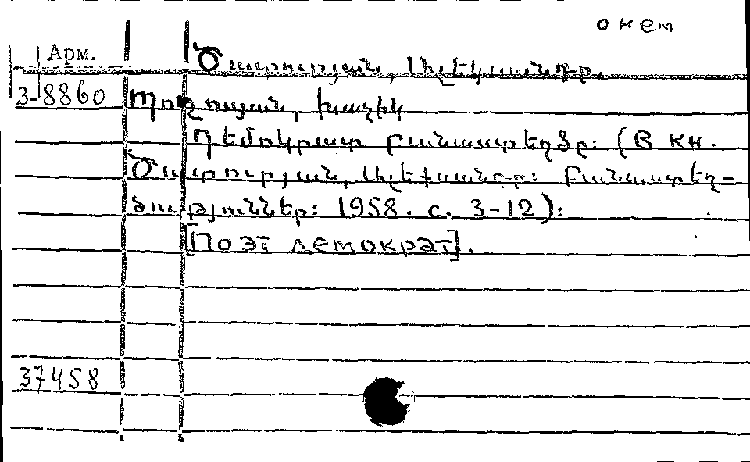 о нем
Арм.
Ծատուրյան, Ալեքսանդր.
3-8860
Պոչոյան, Խաչիկ
Դեմոկրատ բանաստեղծը: (В кн.
Ծատուրյան, Ալեքսանդր: Բանաստեղ-
ծություններ: 1958. с. 3-12):
[Поэт демократ].
37458